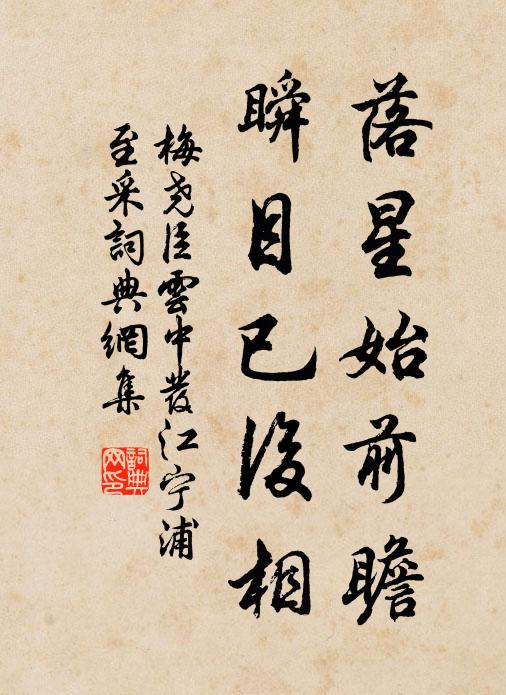 落星始前瞻
瞬目已後相
梅堯臣雲中發江寧浦
至采詞典網集
詞典網印